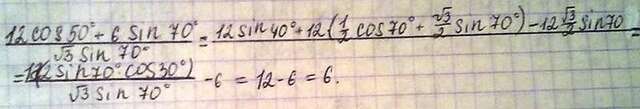 (12cos50° + 6 sin 70°)/(√3 sin 70°) = (12 sin 40° + 12(1/2 cos 70° + √3/2 sin 70°) - 12 √3/2 sin 70)/ =
= (12 sin 70° cos 30°)/(√3 sin 70°) - 6 = 12 - 6 = 6.